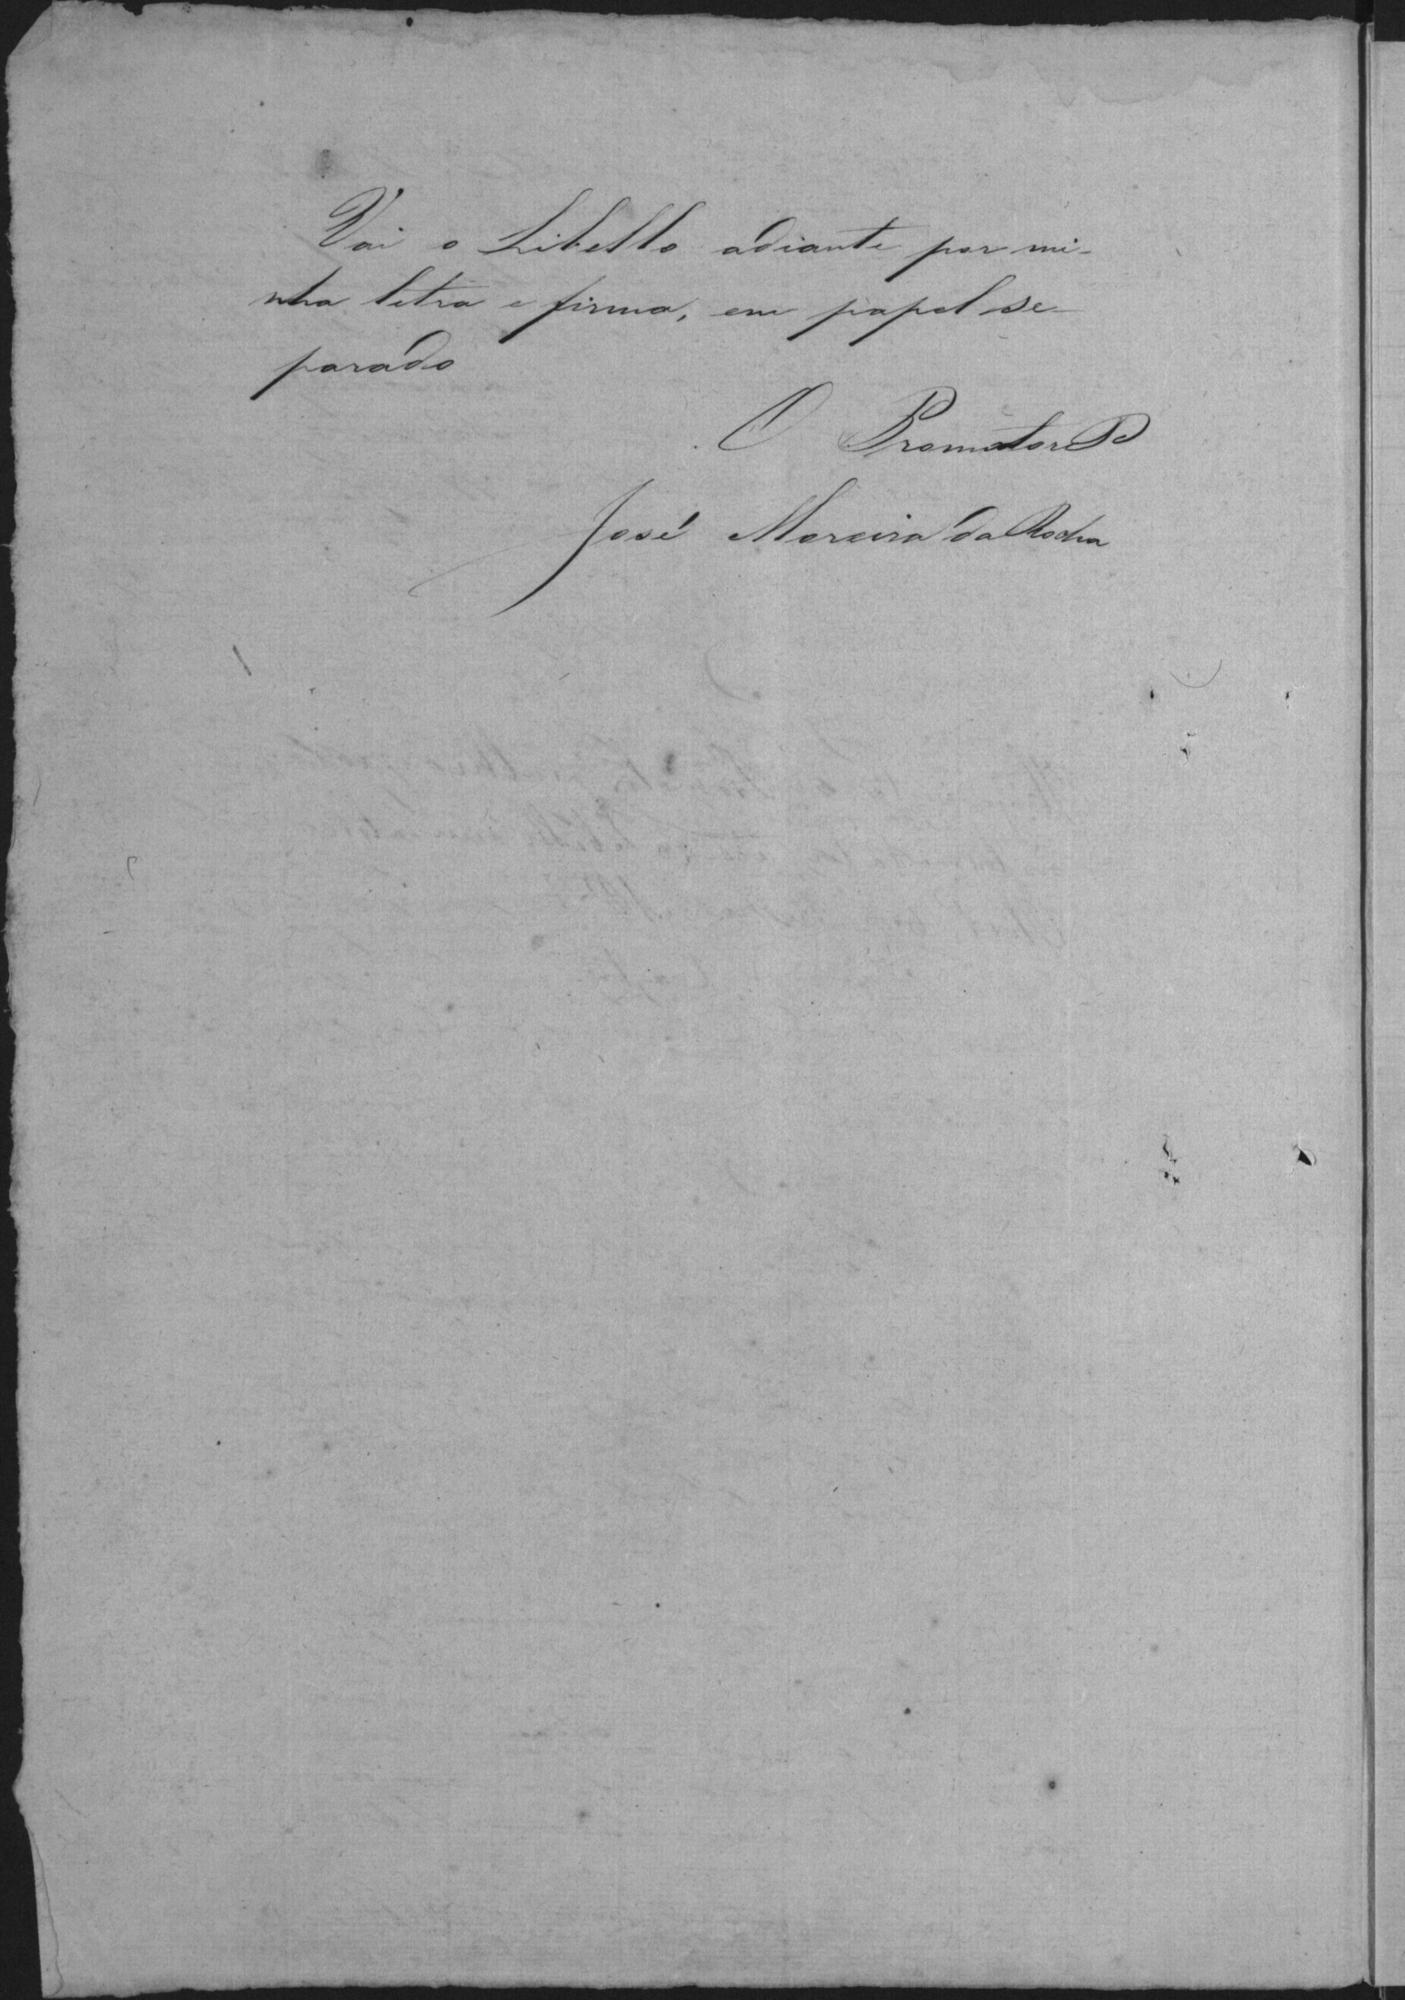 Vai o Libello adiante por mi-
nha letra e firma, em papel se-
parado
O Promotor P
José Moreira da Rocha